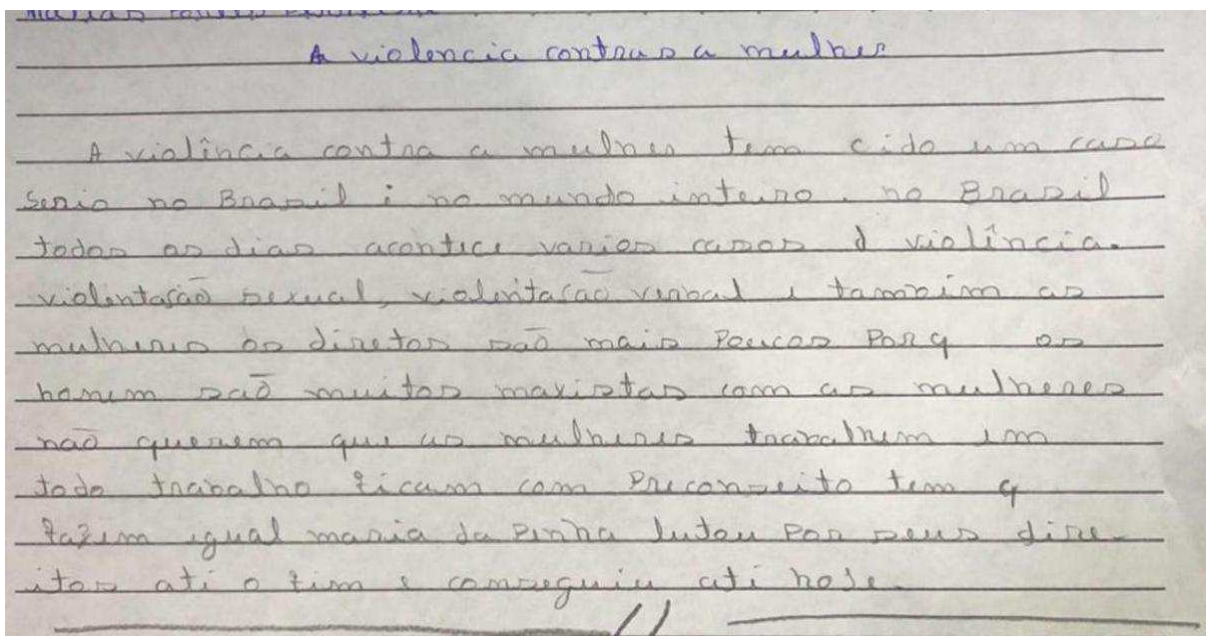 A violencia contras a mulher
A violência contra a mulher tem cido um caso
serio no Brasil e no mundo inteiro. no Brasil
todos os dias acontece varios casos d violência.
violentasão sexual, violentasão verbal e também as
mulheres os diretos são mais poucos porq os
homem são muitos maxistas com as mulheres
não querem que as mulheres trabalhem em
todo trabalho ficam com preconseito tem q
fazem igual maria da penha lutou por seus dire-
itos até o fim e conseguiu até hoje.